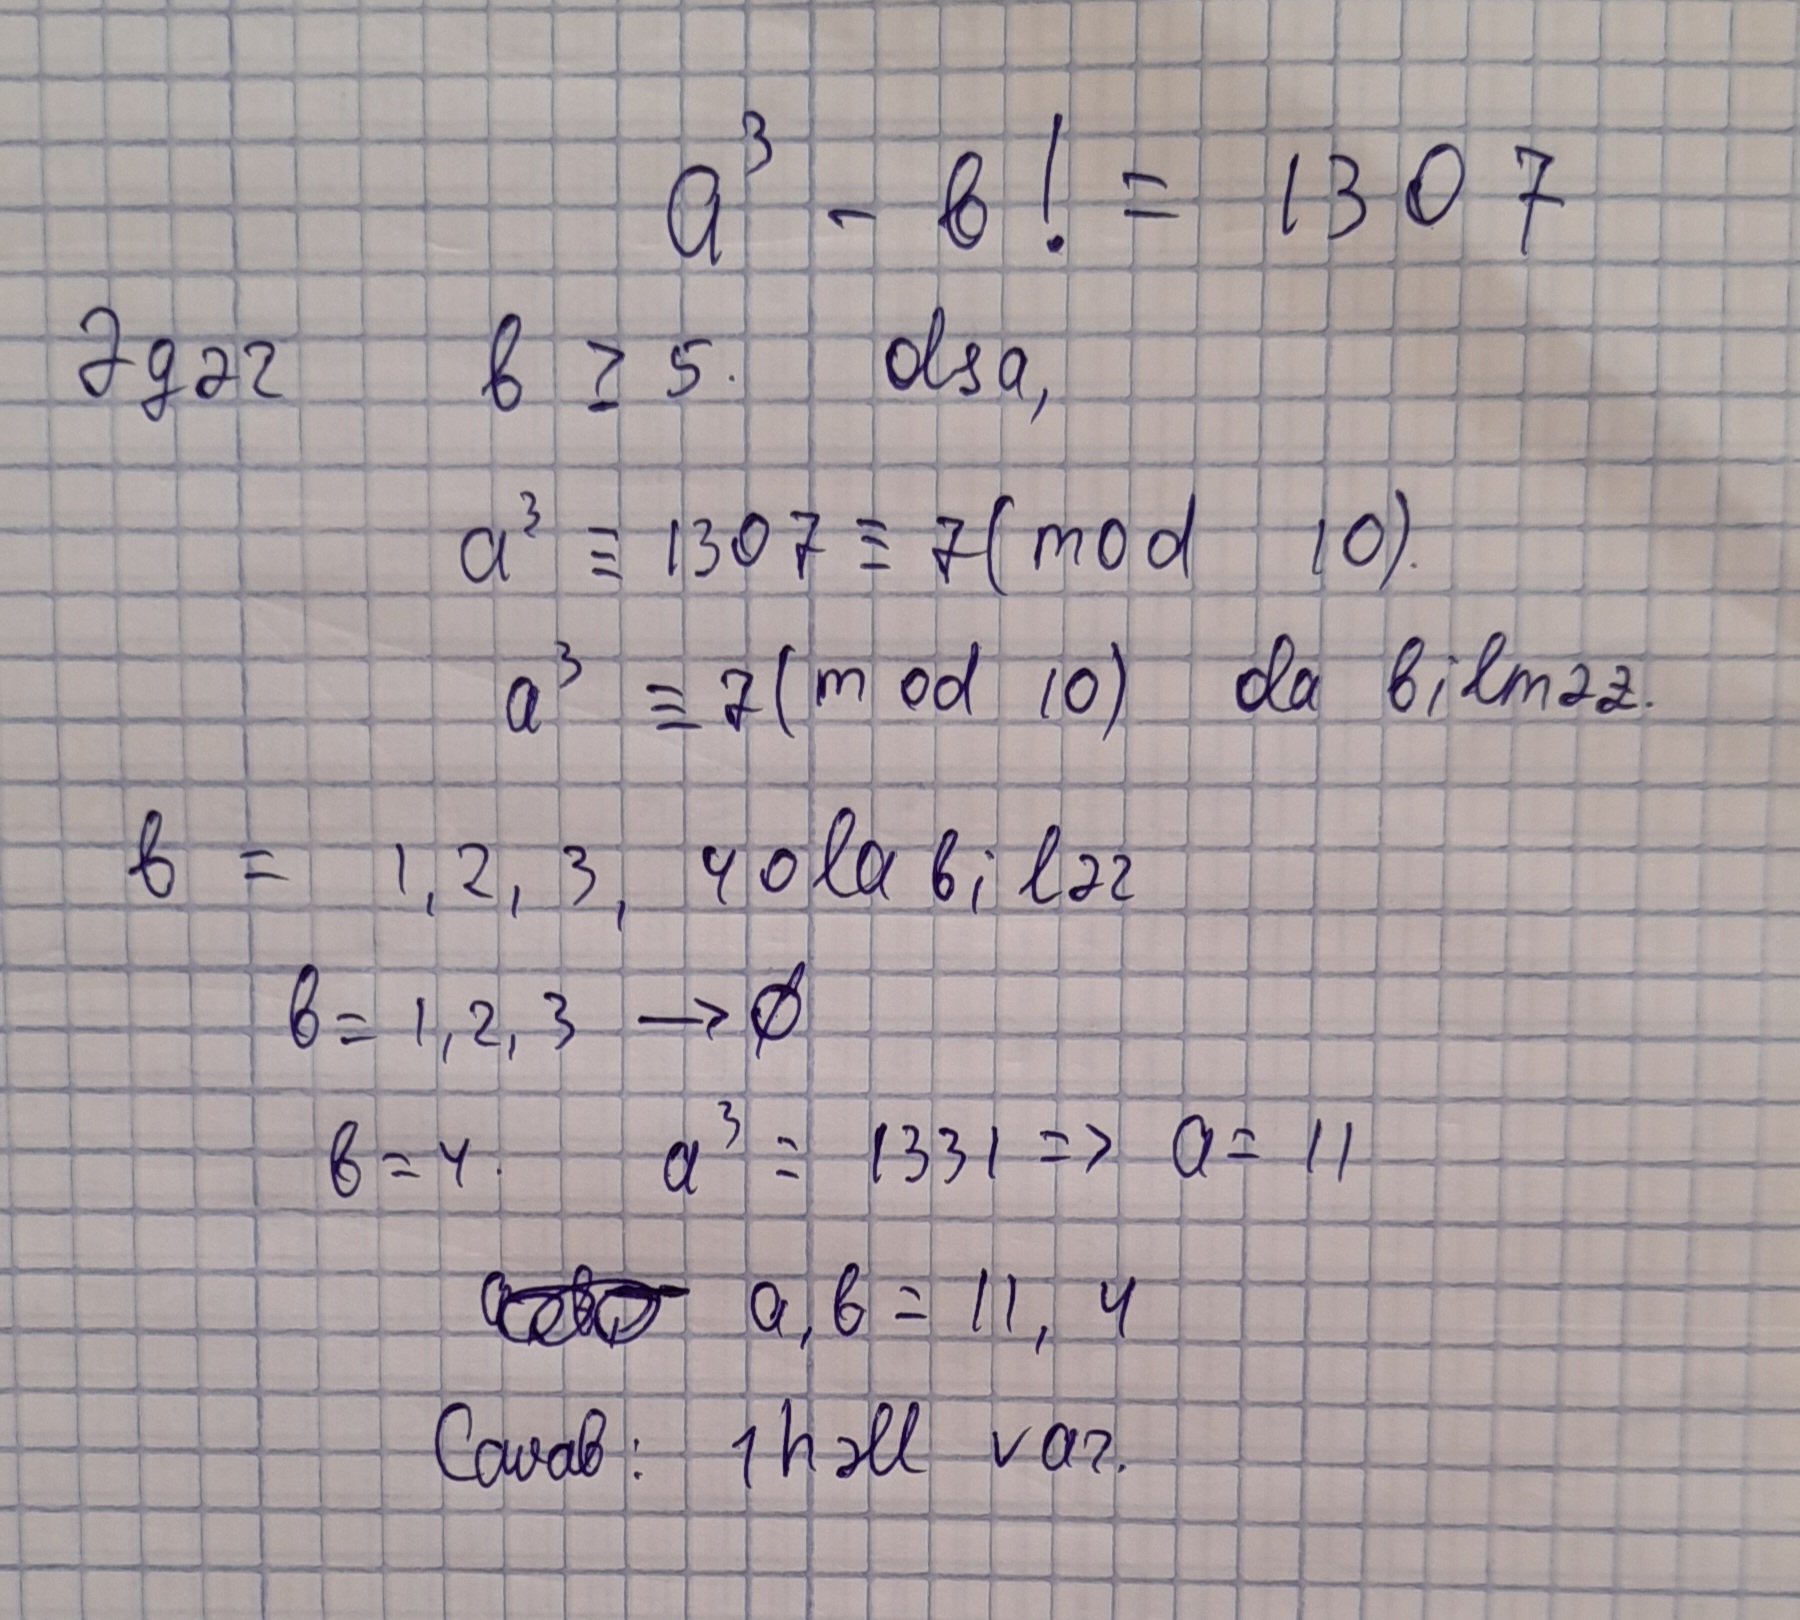 a³ - b! = 1307
Əgər b ≥ 5. olsa,
a³ ≡ 1307 ≡ 7(mod 10).
a³ ≡ 7(mod 10) ola bilməz.
b = 1, 2, 3, 4 ola bilər
b = 1, 2, 3 → ∅
b = 4. a³ = 1331 => a = 11
a, b = 11, 4
Cavab: 1 həll var.